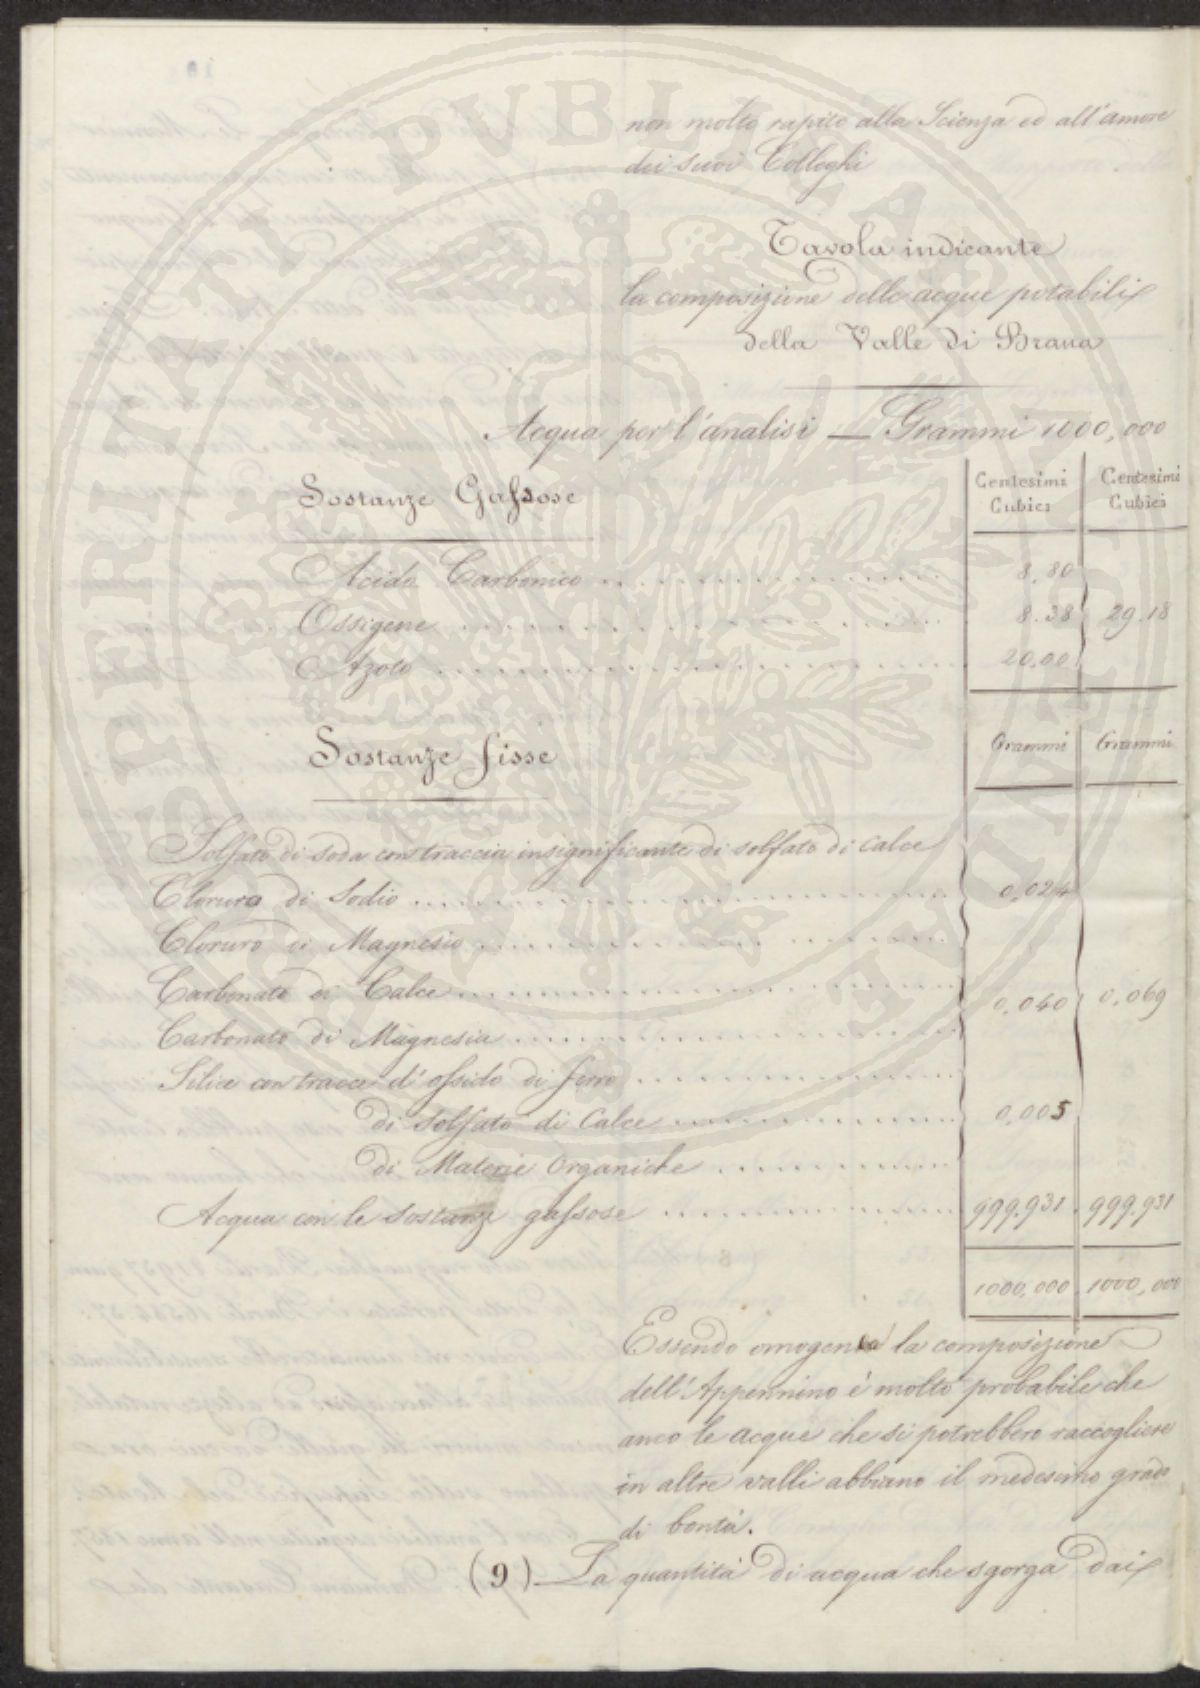 non molto rapito alla Scienza ed all'amore
dei suoi Colleghi
Tavola indicante
la composizione delle acque potabili
della Valle di Brana
Acqua per l'analisi — Grammi 1000,000
Sostanze Gassose
Centesimi Cubici
Centesimi Cubici
Acido Carbonico ........ 8.80
Ossigene ........ 8.38 29.18
Azoto ........ 20.00
Sostanze fisse
Grammi Grammi
Solfato di soda con traccia insignificante di solfato di calce
Cloruro di Sodio ........ 0,024
Cloruro di Magnesio ........
Carbonato di Calce ........ 0,040 0,069
Carbonato di Magnesia ........
Silice con tracce d'ossido di ferro ........
di Solfato di Calce ........ 0,005
di Materie Organiche ........
Acqua con le sostanze gassose ........ 999,931 999,931
1000,000 1000,000
Essendo omogenea la composizione
dell'Appennino è molto probabile che
anco le acque che si potrebbero raccogliere
in altre valli abbiano il medesimo grado
di bontà.
(9) — La quantità di acqua che sgorga dai